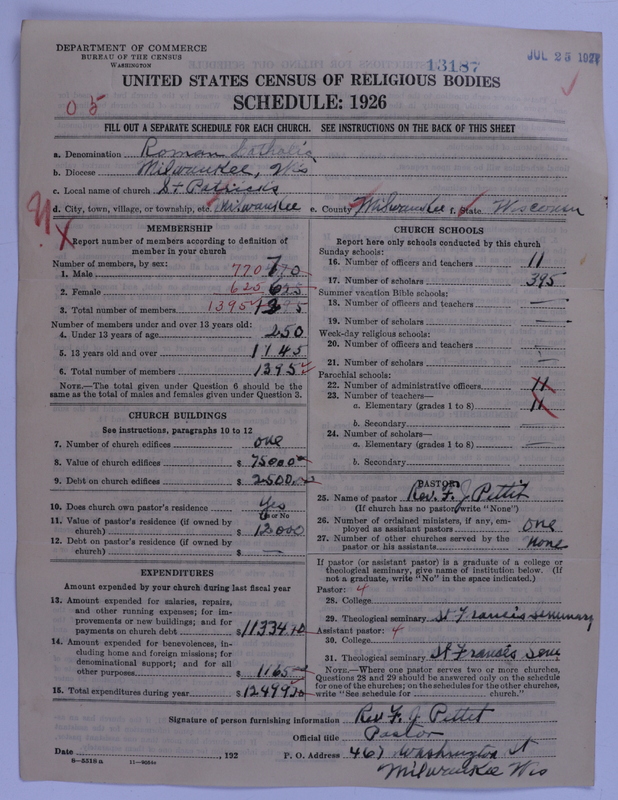 DEPARTMENT OF COMMERCE
BUREAU OF THE CENSUS
WASHINGTON
13187
JUL 25 1927
UNITED STATES CENSUS OF RELIGIOUS BODIES
SCHEDULE: 1926
0 5
FILL OUT A SEPARATE SCHEDULE FOR EACH CHURCH. SEE INSTRUCTIONS ON THE BACK OF THIS SHEET
a. Denomination Roman Catholic
b. Diocese Milwaukee, Wis
c. Local name of church St Patricks
d. City, town, village, or township, etc. Milwaukee e. County Milwaukee f. State Wisconsin
MEMBERSHIP
Report number of members according to definition of
member in your church
Number of members, by sex:
1. Male 770 770
2. Female 625 625
3. Total number of members 1395 1395
Number of members under and over 13 years old:
4. Under 13 years of age 250
5. 13 years old and over 1145
6. Total number of members 1395
NOTE.—The total given under Question 6 should be
same as the total of males and females given under Question 3.
CHURCH BUILDINGS
See instructions, paragraphs 10 to 12
7. Number of church edifices one
8. Value of church edifices $ 75000
9. Debt on church edifices $ 2500
10. Does church own pastor's residence Yes
Yes or No
11. Value of pastor's residence (if owned by
church) $ 12000
12. Debt on pastor's residence (if owned by
church) $ —
EXPENDITURES
Amount expended by your church during last fiscal year
13. Amount expended for salaries, repairs,
and other running expenses; for im-
provements or new building; and for
payments on church debt $ 11334.20
14. Amount expended for benevolences, in-
cluding home and foreign missions; for
denominational support; and for all
other purposes $ 1165
15. Total expenditures during year $ 12499.20
CHURCH SCHOOLS
Report here only schools conducted by this church
Sunday schools:
16. Number of officers and teachers 11
17. Number of scholars 395
Summer vacation Bible schools:
18. Number of officers and teachers —
19. Number of scholars —
Week-day religious schools:
20. Number of officers and teachers —
21. Number of scholars —
Parochial schools:
22. Number of administrative officers 11
23. Number of teachers—
a. Elementary (grades 1 to 8) 11
b. Secondary
24. Number of scholars—
a. Elementary (grades 1 to 8) —
b. Secondary
PASTOR
25. Name of pastor Rev. F. J. Pettit
(If church has no pastor, write "None")
26. Number of ordained ministers, if any, em-
ployed as assistant pastors one
27. Number of other churches served by the
pastor or his assistants none
If pastor (or assistant pastor) is a graduate of a college or
theological seminary, give name of institution below. (If
not a graduate, write "No" in the space indicated.)
Pastor: 4
28. College
29. Theological seminary St Francis Seminary
Assistant pastor: 4
30. College
31. Theological seminary St Francis Sem
NOTE.—Where one pastor serves two or more churches,
Questions 28 and 29 should be answered only on the schedule
for one of the churches; on the schedules for the other churches,
write "See schedule for church."
Signature of person furnishing information Rev F. J. Pettit
Official title Pastor
Date , 192 P. O. Address 461 Washington St
8—5518 a 11—9664
Milwaukee Wis